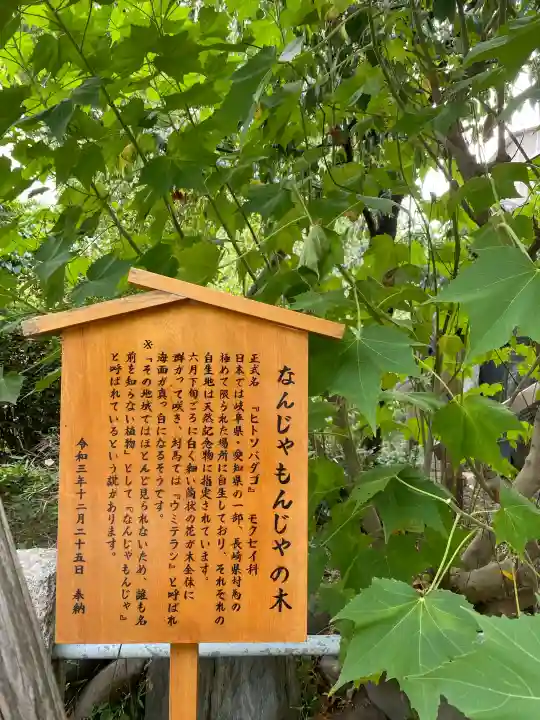 なんじゃもんじゃの木
正式名 『ヒトツバダゴ』 モクセイ科
日本では岐阜県・愛知県の一部、長崎県対馬の
極めて限られた場所に自生しており、それぞれの
自生地は天然記念物に指定されています。
六月下旬ごろに白く細い筒状の花が木全体に
群がって咲き、対馬では『ウミテラシ』と呼ばれ
海面が真っ白になるそうです。
※『その地域ではほとんど見られないため、誰も名
前を知らない植物』として『なんじゃもんじゃ』
と呼ばれているという説があります。
令和三年十二月二十五日 奉納